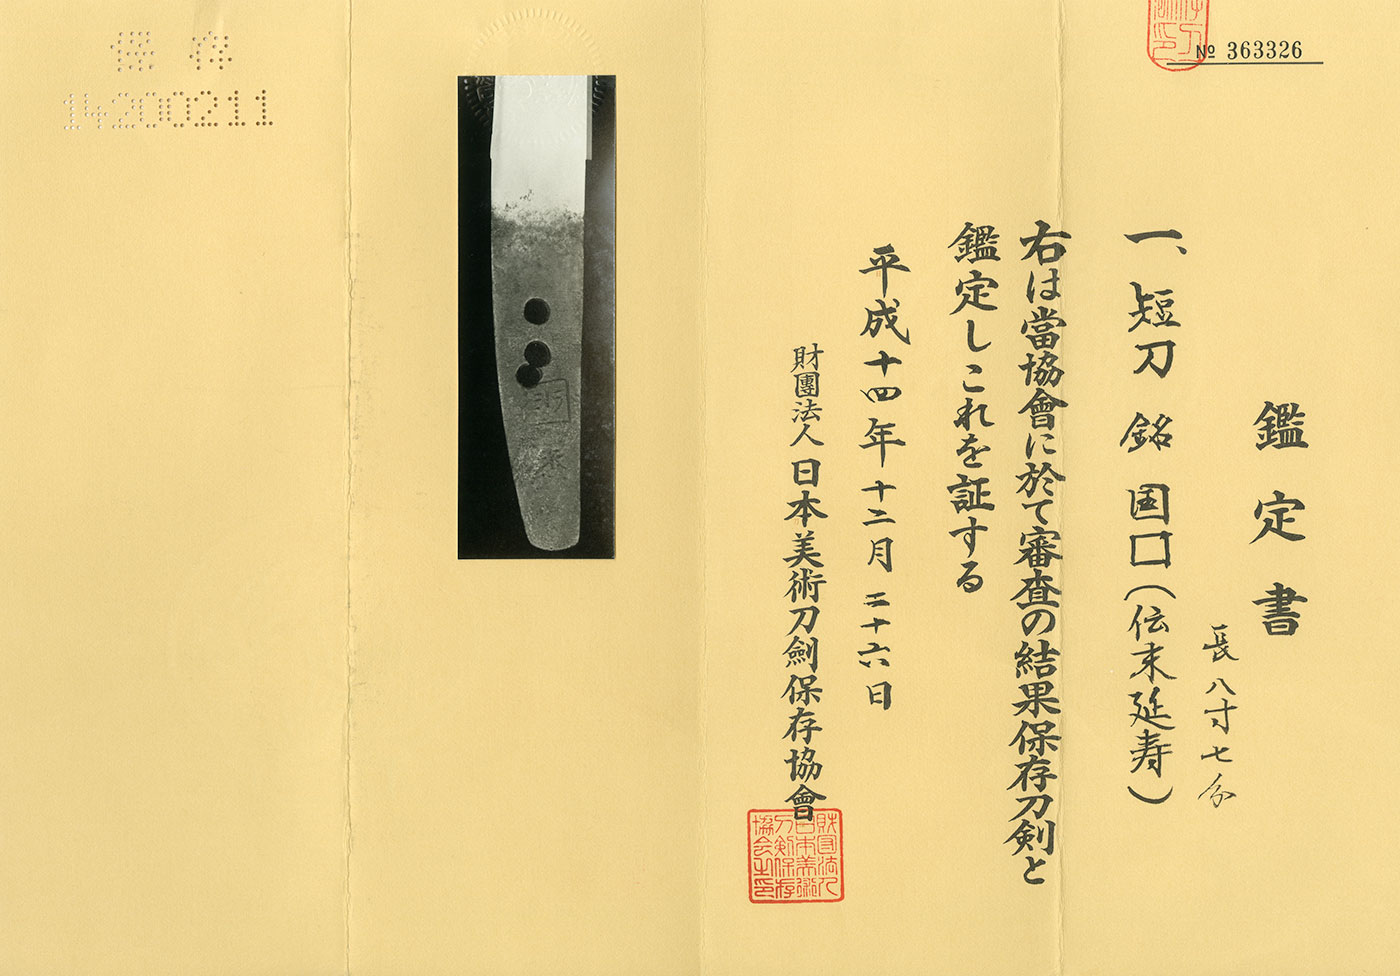 № 363326
鑑定書
長八寸七分
一、短刀 銘 国囗(伝末延寿)
右は當協會に於て審査の結果保存刀剣と
鑑定しこれを証する
平成十四年十二月二十六日
財團法人日本美術刀劍保存協會
財団法人
日本美術
刀剣保存
協会之印
保存
14200211
国